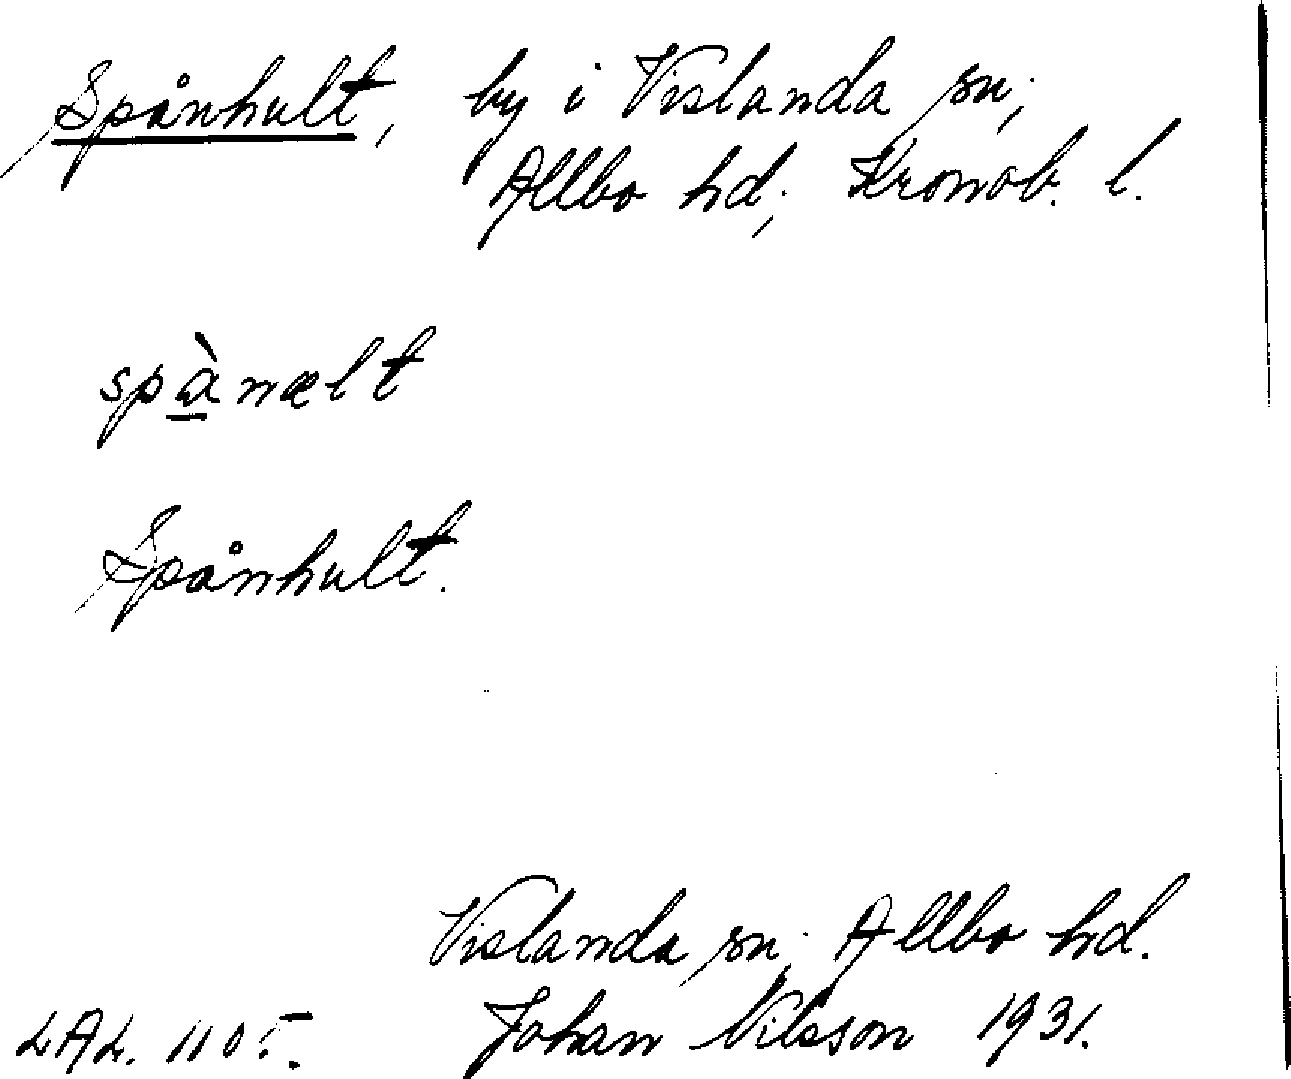 Spånhult, by i Vislanda sn;
Allbo hd; Kronob. l.
spànælt
Spånhult.
Vislanda sn; Allbo hd.
LAL. 1105. Johan Nilsson 1931.